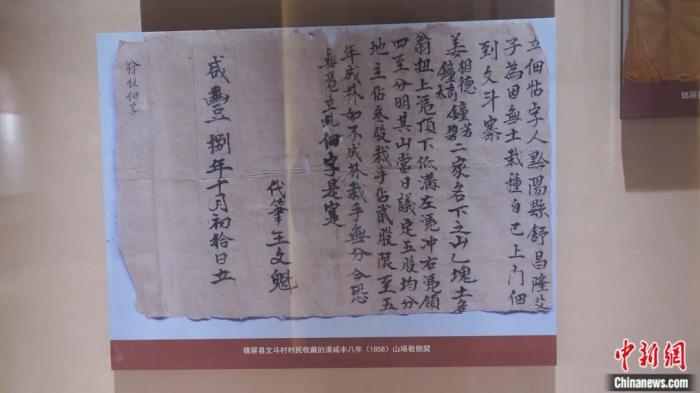 立佃帖字人黔陽縣舒昌隆父
子為因無土栽種自己上门佃
到文斗寨
姜相德鐘芳
鐘太
鐘碧二家名下之山乙塊土名
翁扭上憑頂下低溝左憑冲右憑領
四至分明其山當日議定五股均分
地主佔叁股栽手佔貳股限至五
年成林如不成林栽手無分今恐
無憑立此佃字是實
代筆王文魁
咸豐捌年十月初拾日立
翁扭佃字
锦屏县文斗村村民收藏的清咸丰八年（1858）山场租佃契
锦屏县
中新网
Chinanews.com